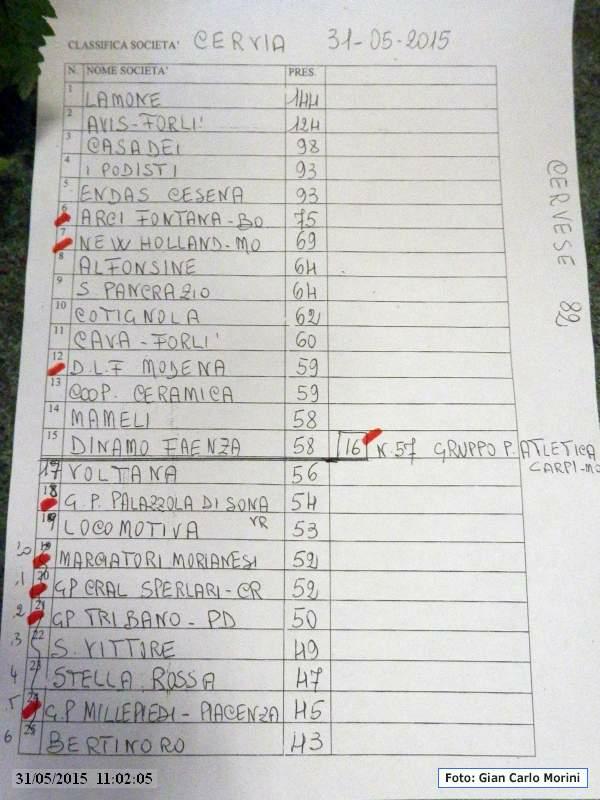 CLASSIFICA SOCIETA' CERVIA 31-05-2015
N. NOME SOCIETA' PRES.
1 LAMONE 144
2 AVIS-FORLI' 124
3 CASADEI 98
4 I PODISTI 93
5 ENDAS CESENA 93
6 ARCI FONTANA-BO 75
7 NEW HOLLAND-MO 69
8 ALFONSINE 64
9 S PANCRAZIO 64
10 COTIGNOLA 62
11 CAVA-FORLI' 60
12 D.L.F MODENA 59
13 COOP. CERAMICA 59
14 MAMELI 58
15 DINAMO FAENZA 58 16 N.57 GRUPPO P. ATLETICA
CARPI-MO
17 VOLTANA 56
18 G.P. PALAZZOLA DI SONA VR 54
19 LOCOMOTIVA 53
19 MARCIATORI MORIANESI 52
.1 20 GP CRAL SPERLARI-CR 52
.2 21 GP TRIBANO-PD 50
.3 22 S. VITTORE 49
4 23 STELLA ROSSA 47
.5 24 G.P MILLEPIEDI-PIACENZA 45
6 25 BERTINORO 43
CERVESE 82
31/05/2015 11:02:05
Foto: Gian Carlo Morini